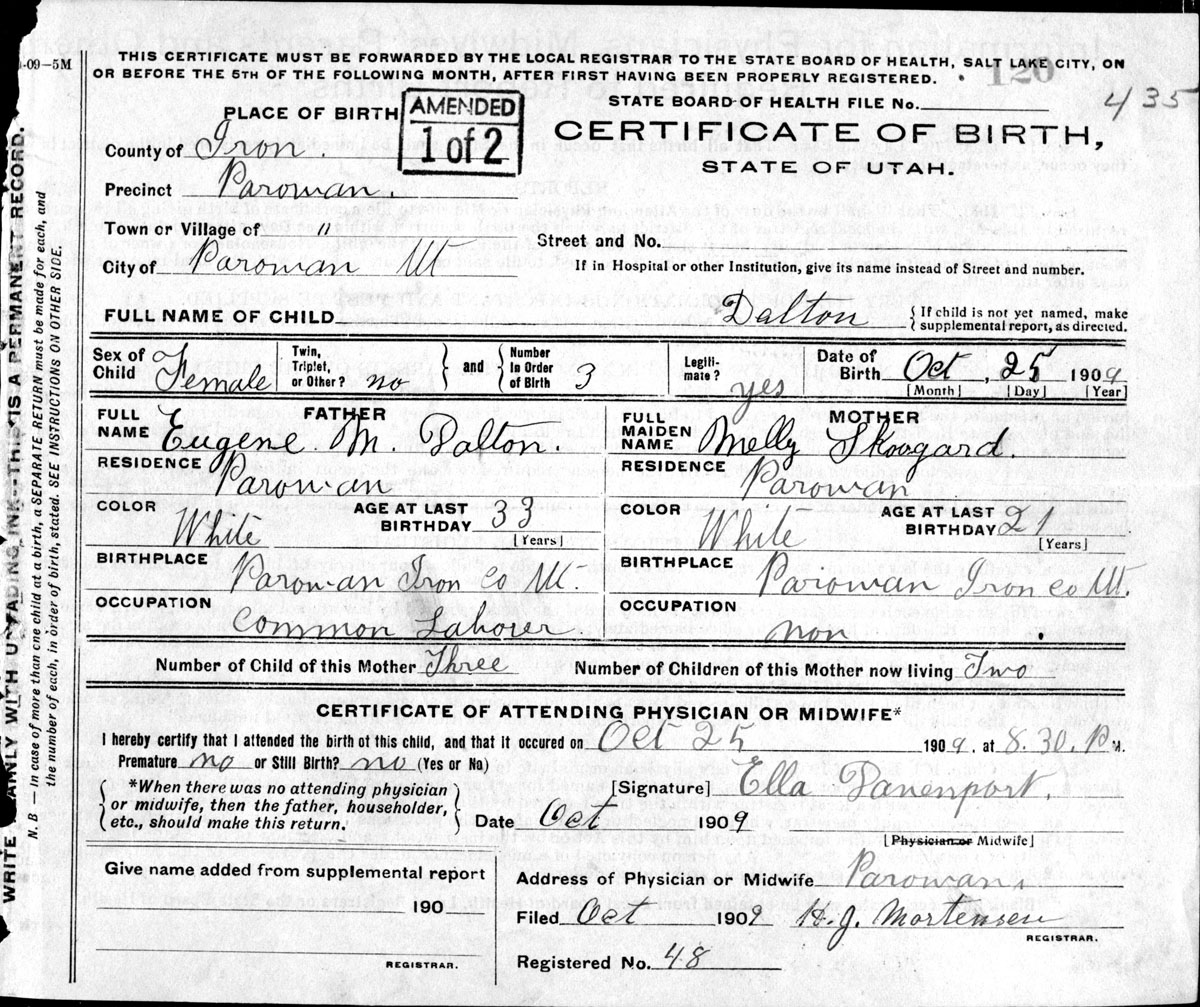 -09-5M
THIS CERTIFICATE MUST BE FORWARDED BY THE LOCAL REGISTRAR TO THE STATE BOARD OF HEALTH, SALT LAKE CITY, ON
OR BEFORE THE 5TH OF THE FOLLOWING MONTH, AFTER FIRST HAVING BEEN PROPERLY REGISTERED.
120
435
PLACE OF BIRTH
AMENDED
1 of 2
STATE BOARD OF HEALTH FILE No.
CERTIFICATE OF BIRTH,
STATE OF UTAH.
County of Iron.
Precinct Parowan.
Town or Village of "
City of Parowan Ut
Street and No.
If in Hospital or other Institution, give its name instead of Street and number.
FULL NAME OF CHILD Dalton
{If child is not yet named, make
supplemental report, as directed.
Sex of Child Female
Twin, Triplet, or Other? no
and
Number In Order of Birth 3
Legitimate? yes
Date of Birth Oct, 25 1909
[Month] [Day] [Year]
FATHER
FULL NAME Eugene M. Dalton.
RESIDENCE Parowan
COLOR White
AGE AT LAST BIRTHDAY 33
[Years]
BIRTHPLACE Parowan Iron Co Ut.
OCCUPATION Common Laborer.
MOTHER
FULL MAIDEN NAME Melly Skougard.
RESIDENCE Parowan
COLOR White
AGE AT LAST BIRTHDAY 27
[Years]
BIRTHPLACE Parowan Iron Co Ut.
OCCUPATION non
Number of Child of this Mother Three
Number of Children of this Mother now living Two
CERTIFICATE OF ATTENDING PHYSICIAN OR MIDWIFE*
I hereby certify that I attended the birth of this child, and that it occured on Oct 25 1909, at 8.30. P M.
Premature no or Still Birth? no (Yes or No)
{*When there was no attending physician
or midwife, then the father, householder,
etc., should make this return.}
[Signature] Ella Davenport.
Date Oct 1909
[Physician or Midwife]
Give name added from supplemental report
190
REGISTRAR.
Address of Physician or Midwife Parowan,
Filed Oct 1909 H. J. Mortensen
REGISTRAR.
Registered No. 48
WRITE PLAINLY WITH UNFADING INK---THIS IS A PERMANENT RECORD.
N. B — In case of more than one child at a birth, a SEPARATE RETURN must be made for each, and
the number of each, in order of birth, stated. SEE INSTRUCTIONS ON OTHER SIDE.